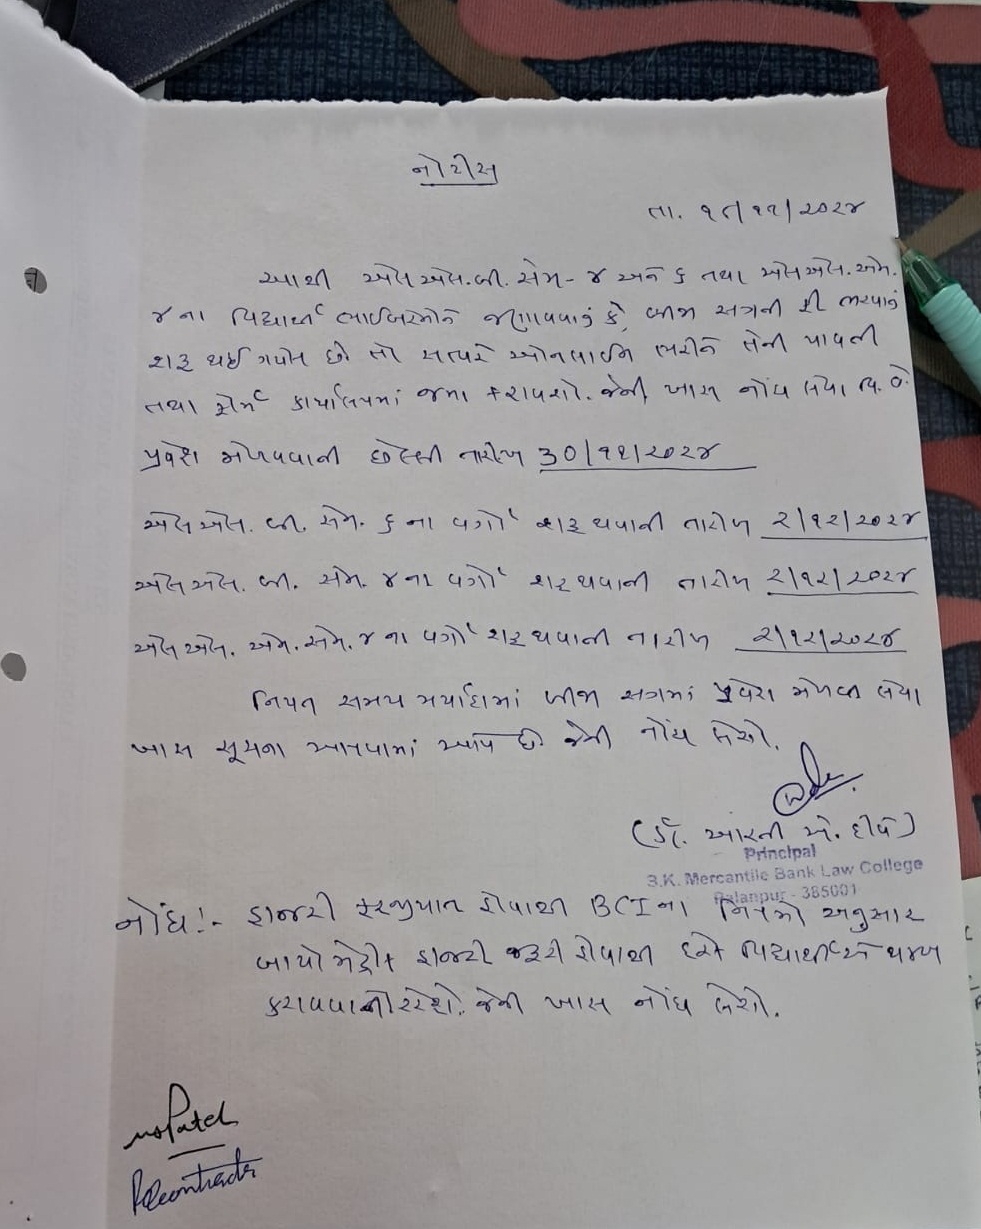 નોટીસ
તા. ૧૮/૧૧/૨૦૨૪
આથી એલએલ.બી. સેમ-૪ અને ૬ તથા એલએલ.એમ.
૪ના વિદ્યાર્થી ભાઈબહેનોને જણાવવાનું કે, બીજા સત્રની ફી ભરવાનું
શરૂ થઈ ગયેલ છે તો સત્વરે ઓનલાઈન ભરીને તેની પાવતી
તથા ફોર્મ કાર્યાલયમાં જમા કરાવશો. જેની ખાસ નોંધ લેવા વિ.
પ્રવેશ મેળવવાની છેલ્લી તારીખ 30/૧૧/૨૦૨૪
એલએલ. બી. સેમ. ૬ ના વર્ગો શરૂ થવાની તારીખ ૨/૧૨/૨૦૨૪
એલએલ. બી. સેમ. ૪ના વર્ગો શરૂ થવાની તારીખ ૨/૧૨/૨૦૨૪
એલએલ. એમ. સેમ. ૪ ના વર્ગો શરૂ થવાની તારીખ ૨/૧૨/૨૦૨૪
નિયત સમય મર્યાદામાં બીજા સત્રમાં પ્રવેશ મેળવી લેવા
ખાસ સૂચના આપવામાં આવે છે જેની નોંધ લેશો.
(ડૉ. આરતી એ.
Principal
S.K. Mercantile Bank Law College
Palanpur - 385001
નોંધ:- હાજરી ફરજીયાત હોવાથી BCIના નિયમો અનુસાર
બાયોમેટ્રીક હાજરી જરૂરી હોવાથી દરેક વિદ્યાર્થીએ થમ્બ
કરાવવાનો રહેશે. જેની ખાસ નોંધ લેશો.
Patel